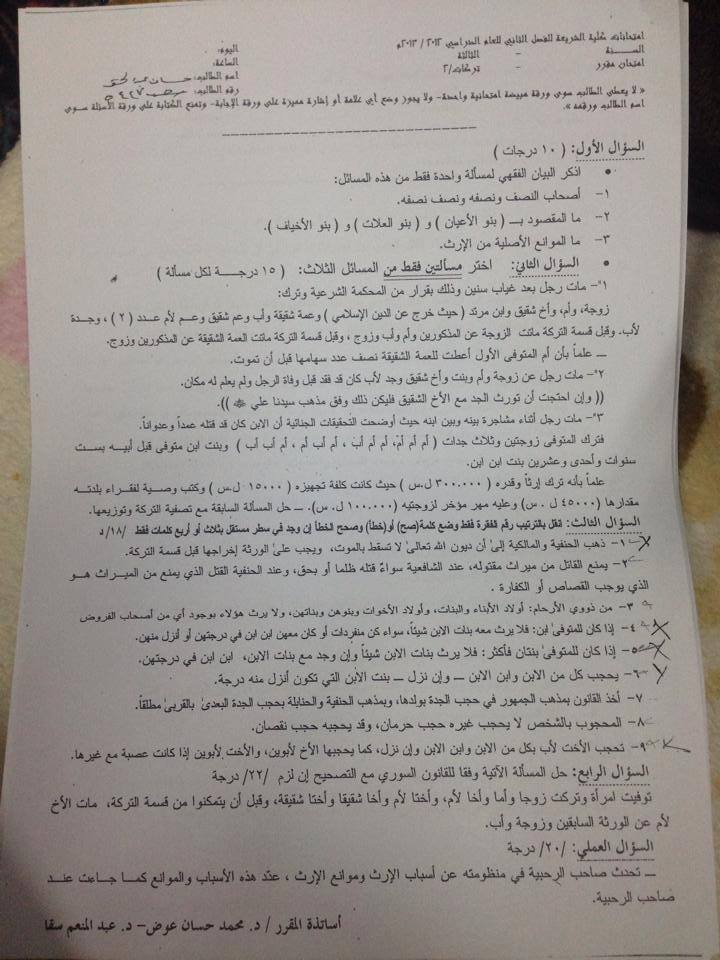 امتحانات كلية الشريعة للفصل الثاني للعام الدراسي ٢٠١٢ / ٢٠١٣م
السنة - الثالثة
امتحان مقرر - تركات/٢
اليوم:
الساعة:
اسم الطالب: حسان
رقم الطالب:
« لا يعطى الطالب سوى ورقة مبيضة امتحانية واحدة- ولا يجوز وضع أي علامة أو إشارة مميزة على ورقة الإجابة- وتمنع الكتابة على ورقة الأسئلة سوى
اسم الطالب ورقمه ».
السؤال الأول: ( ١٠ درجات )
• اذكر البيان الفقهي لمسألة واحدة فقط من هذه المسائل:
١- أصحاب النصف ونصفه ونصف نصفه.
٢- ما المقصود بـــ ( بنو الأعيان ) و ( بنو العلات ) و ( بنو الأخياف ).
٣- ما الموانع الأصلية من الإرث.
• السؤال الثاني: اختر مسألتين فقط من المسائل الثلاث: ( ١٥ درجـــة لكل مسألة )
١ً- مات رجل بعد غياب سنين وذلك بقرار من المحكمة الشرعية وترك:
زوجة، وأم، وأخ شقيق وابن مرتد ( حيث خرج عن الدين الإسلامي ) وعمة شقيقة وأب وعم شقيق وعــم لأم عـدد ( ٢ ) ، وجـدة
لأب. وقبل قسمة التركة ماتت الزوجة عن المذكورين وأم وأب وزوج ، وقبل قسمة التركة ماتت العمة الشقيقة عن المذكورين وزوج.
ـــ علماً بأن أم المتوفى الأول أعطت للعمة الشقيقة نصف عدد سهامها قبل أن تموت.
٢ً- مات رجل عن زوجة وأم وبنت وأخ شقيق وجد لأب كان قد فقد قبل وفاة الرجل ولم يعلم له مكان.
(( وإن احتجت أن تورث الجد مع الأخ الشقيق فليكن ذلك وفق مذهب سيدنا علي )).
٣ً- مات رجل أثناء مشاجرة بينه وبين ابنه حيث أوضحت التحقيقات الجنائية أن الابن كان قد قتله عمداً وعدواناً.
فترك المتوفى زوجتين وثلاث جدات ( أم أم أم، أم أم أب ، أم أب أم ، أم أب أب ) وبنت ابن متوفى قبل أبيـــه بست
سنوات وأحدى وعشرين بنت ابن ابن.
علماً بأنه ترك إرثاً وقدره ( ٣٠٠.٠٠٠ ل.س ) حيث كانت كلفة تجهيزه ( ١٥٠٠٠ ل.س ) وكتب وصية لفقــراء بلدتـــه
مقدارها (٤٥٠٠٠ ل.س) وعليه مهر مؤخر لزوجتيه (١٠٠.٠٠٠ ل.س). ـــ حل المسألة السابقة مع تصفية التركة وتوزيعها.
السؤال الثالث: انقل بالترتيب رقم الفقرة فقط وضع كلمة(صح) أو(خطأ) وصحح الخطأ إن وجد في سطر مستقل بثلاث أو أربع كلمات فقط /١٨/ د
١- ذهب الحنفية والمالكية إلى أن ديون الله تعالى لا تسقط بالموت، ويجب على الورثة إخراجها قبل قسمة التركة.
٢- يمنع القاتل من ميراث مقتوله، عند الشافعية سواءً قتله ظلما أو بحق، وعند الحنفية القتل الذي يمنع من الميــراث هــو
الذي يوجب القصاص أو الكفارة .
٣- من ذووي الأرحام: أولاد الأبناء والبنات، وأولاد الأخوات وبنوهن وبناتهن، ولا يرث هؤلاء بوجود أي من أصحاب الفروض
٤- إذا كان للمتوفى ابن: فلا يرث معه بنات الابن شيئاً، سواء كن منفردات أو كان معهن ابن ابن في درجتهن أو أنزل منهن.
٥- إذا كان للمتوفى بنتان فأكثر: فلا يرث بنات الابن شيئاً وإن وجد مع بنات الابن، ابن ابن في درجتهن.
٦- يحجب كل من الابن وابن الابن ـــ وإن نزل ـــ بنت الابن التي تكون أنزل منه درجة.
٧- أخذ القانون بمذهب الجمهور في حجب الجدة بولدها، وبمذهب الحنفية والحنابلة بحجب الجدة البعدى بالقربى مطلقاً.
٨- المحجوب بالشخص لا يحجب غيره حجب حرمان، وقد يحجبه حجب نقصان.
٩- تحجب الأخت لأب بكل من الابن وابن الابن وإن نزل، كما يحجبها الأخ لأبوين، والأخت لأبوين إذا كانت عصبة مع غيرها.
السؤال الرابع: حل المسألة الآتية وفقا للقانون السوري مع التصحيح إن لزم /٢٢/ درجة
توفيت امرأة وتركت زوجا وأما وأخا لأم، وأختا لأم وأخا شقيقا وأختا شقيقة، وقبل أن يتمكنوا من قسمة التركة، مات الأخ
لأم عن الورثة السابقين وزوجة وأب.
السؤال العملي: /٢٠/ درجة
ـــ تحدث صاحب الرحبية في منظومته عن أسباب الإرث وموانع الإرث ، عدّد هذه الأسباب والموانع كمــا جـاءت عنـد
صاحب الرحبية.
أساتذة المقرر / د. محمد حسان عوض- د. عبد المنعم سقا